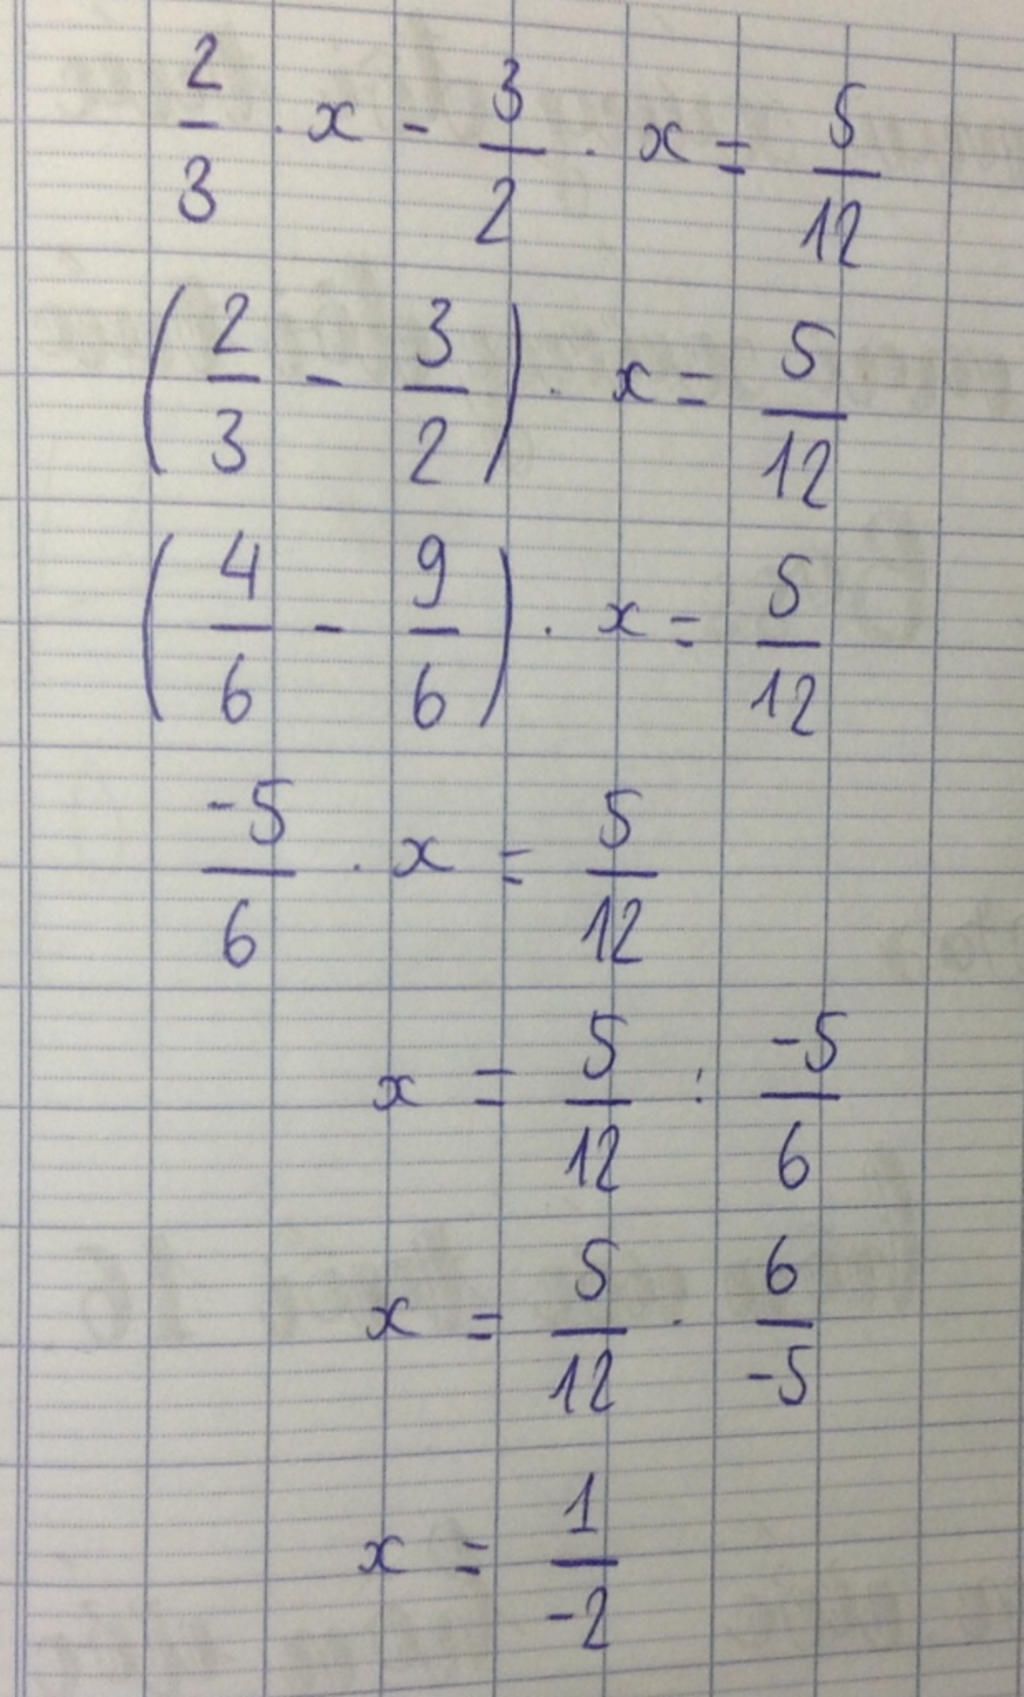 2/3 . x - 3/2 . x = 5/12
(2/3 - 3/2) . x = 5/12
(4/6 - 9/6) . x = 5/12
-5/6 . x = 5/12
x = 5/12 : -5/6
x = 5/12 . 6/-5
x = 1/-2